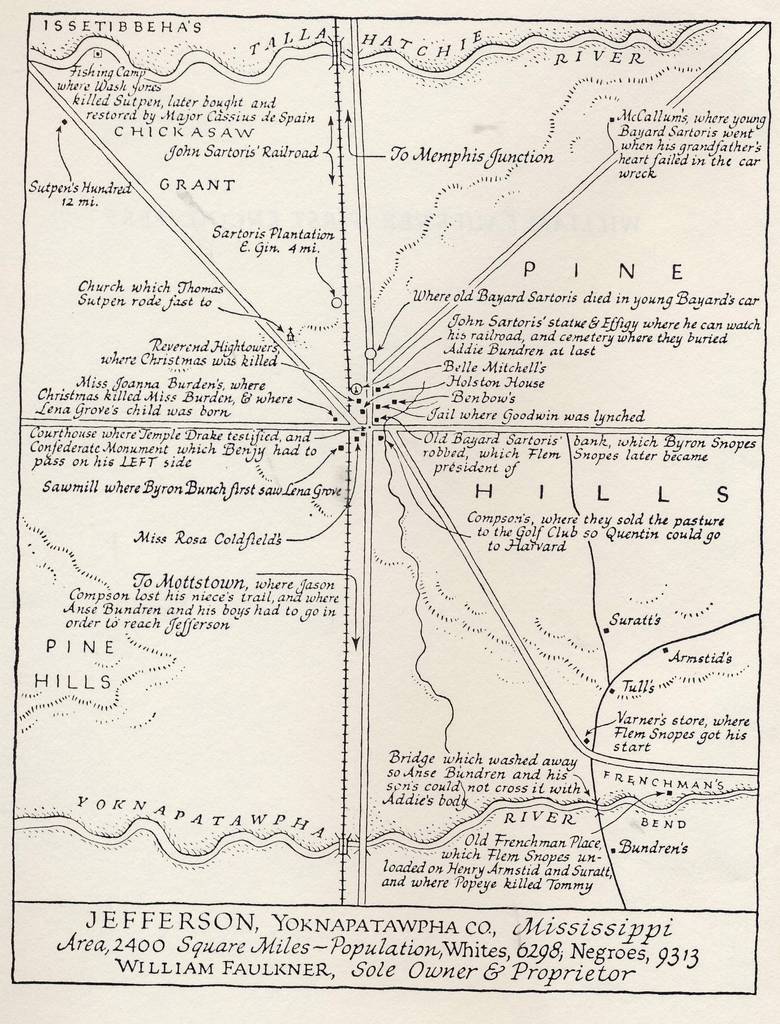 ISSETIBBEHA'S
TALLAHATCHIE
RIVER
Fishing Camp
where Wash Jones
killed Sutpen, later bought and
restored by Major Cassius de Spain
CHICKASAW
John Sartoris' Railroad
To Memphis Junction
McCallum's, where young
Bayard Sartoris went
when his grandfather's
heart failed in the car
wreck
Sutpen's Hundred
12 mi.
GRANT
Sartoris Plantation
E. Gin. 4 mi.
PINE
Church which Thomas
Sutpen rode fast to
Where old Bayard Sartoris died in young Bayard's car
John Sartoris' statue & Effigy where he can watch
his railroad, and cemetery where they buried
Addie Bundren at last
Reverend Hightower's,
where Christmas was killed
Belle Mitchell's
Holston House
Benbow's
Jail where Goodwin was lynched
Miss Joanna Burden's, where
Christmas killed Miss Burden, & where
Lena Grove's child was born
Courthouse where Temple Drake testified, and
Confederate Monument which Benjy had to
pass on his LEFT side
Old Bayard Sartoris' bank, which Byron Snopes
robbed, which Flem Snopes later became
president of
Sawmill where Byron Bunch first saw Lena Grove
HILLS
Miss Rosa Coldfield's
Compson's, where they sold the pasture
to the Golf Club so Quentin could go
to Harvard
To Mottstown, where Jason
Compson lost his niece's trail, and where
Anse Bundren and his boys had to go in
order to reach Jefferson
PINE
HILLS
Suratt's
Armstid's
Tull's
Varner's store, where
Flem Snopes got his
start
Bridge which washed away
so Anse Bundren and his
sons could not cross it with
Addie's body
FRENCHMAN'S
BEND
YOKNAPATAWPHA
RIVER
Old Frenchman Place,
which Flem Snopes un-
loaded on Henry Armstid and Suratt,
and where Popeye killed Tommy
Bundren's
JEFFERSON, YOKNAPATAWPHA CO., Mississippi
Area, 2400 Square Miles–Population, Whites, 6298; Negroes, 9313
WILLIAM FAULKNER, Sole Owner & Proprietor